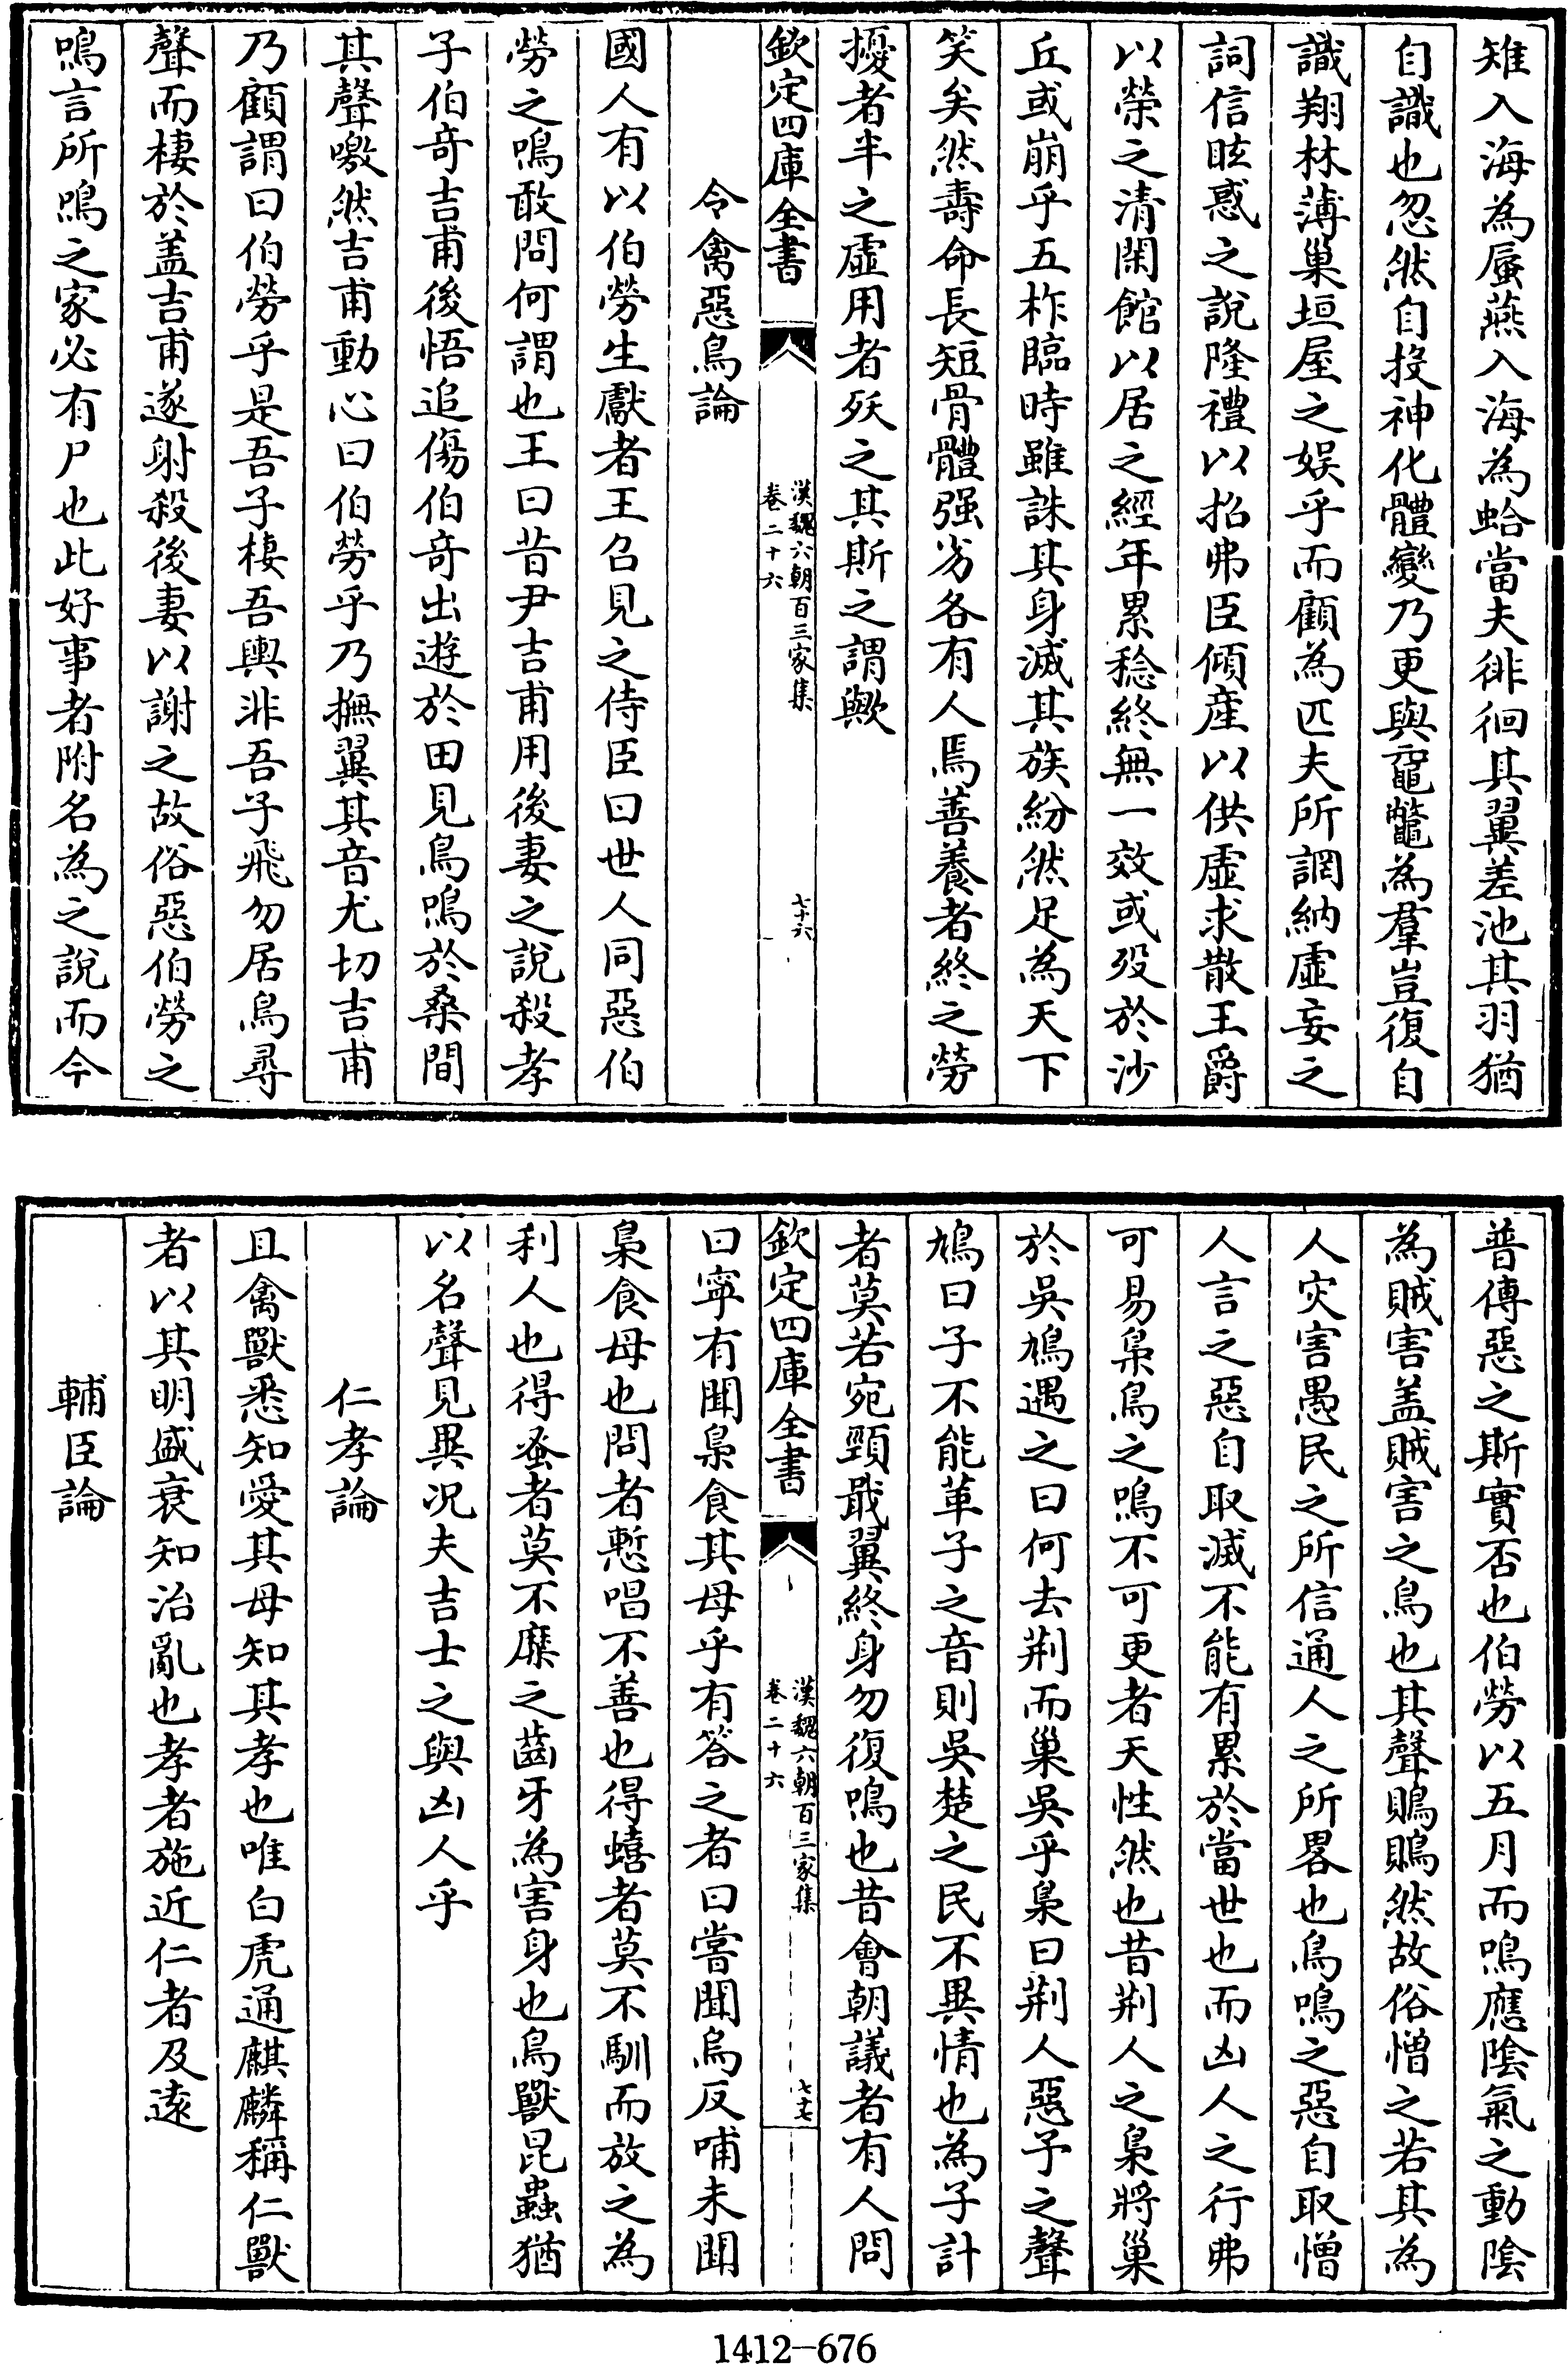 雉入海為蜃燕入海為蛤當夫徘徊其翼差池其羽猶
自識也忽然自投神化體變乃更與黿鼈為羣豈復自
識翔林薄巢垣屋之娱乎而顧為匹夫所誷納虛妄之
詞信眩惑之說隆禮以招弗臣傾産以供虛求散王爵
以榮之清閑館以居之經年累稔終無一效或殁於沙
丘或崩乎五柞臨時雖誅其身滅其族紛然足為天下
笑矣然壽命長短骨體强劣各有人焉善養者終之勞
擾者半之虛用者殀之其斯之謂歟
欽定四庫全書
漢魏六朝百三家集
卷二十六
七十六
令禽惡鳥論
國人有以伯勞生獻者王召見之侍臣曰世人同惡伯
勞之鳴敢問何謂也王曰昔尹吉甫用後妻之說殺孝
子伯竒吉甫後悟追傷伯竒出遊於田見鳥鳴於桑間
其聲噭然吉甫動心曰伯勞乎乃撫翼其音尤切吉甫
乃顧謂曰伯勞乎是吾子棲吾輿非吾子飛勿居鳥尋
聲而棲於盖吉甫遂射殺後妻以謝之故俗惡伯勞之
鳴言所鳴之家必有尸也此好事者附名為之說而今
普傳惡之斯實否也伯勞以五月而鳴應隂氣之動隂
為賊害盖賊害之鳥也其聲鵙鵙然故俗憎之若其為
人灾害愚民之所信通人之所畧也鳥鳴之惡自取憎
人言之惡自取滅不能有累於當世也而凶人之行弗
可易梟鳥之鳴不可更者天性然也昔荆人之梟將巢
於吳鳩遇之曰何去荆而巢吳乎梟曰荆人惡予之聲
鳩曰子不能革子之音則吳楚之民不異情也為子計
者莫若宛頸戢翼終身勿復鳴也昔會朝議者有人問
欽定四庫全書
漢魏六朝百三家集
卷二十六
七十七
曰寧有聞梟食其母乎有答之者曰嘗聞烏反哺未聞
梟食母也問者慙唱不善也得蟢者莫不馴而放之為
利人也得蚤者莫不糜之齒牙為害身也鳥獸昆蟲猶
以名聲見異况夫吉士之與凶人乎
仁孝論
且禽獸悉知愛其母知其孝也唯白虎通麒麟稱仁獸
者以其明盛衰知治亂也孝者施近仁者及逺
輔臣論
1412—676